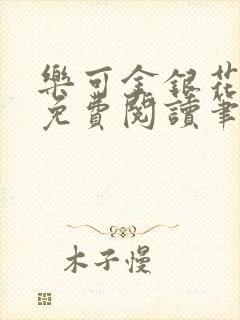 樂可金銀花
免費閱讀筆
木子慢